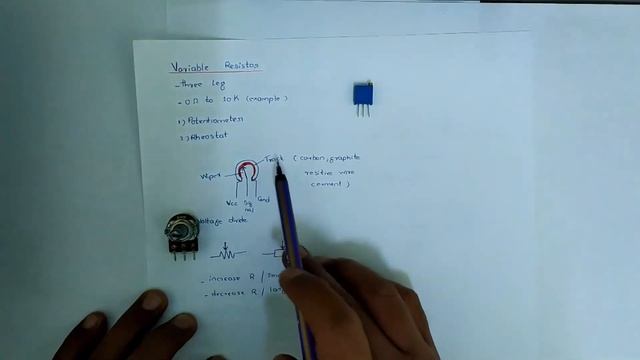 Variable Resistor
- Three Leg
- 0 Ω to 10K (example)
1) Potentiometer
2) Rheostat
Track (carbon, graphite
Wiper resitive wire
cerment)
Vcc Sig Gnd
nal
Voltage divide
- increase R /
- decrease R /